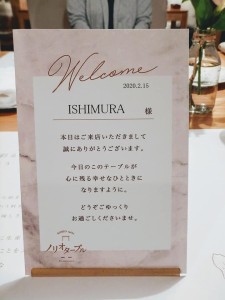 Welcome
2020.2.15
ISHIMURA 様
本日はご来店いただきまして
誠にありがとうございます。
今日のこのテーブルが
心に残る幸せなひとときに
なりますように。
どうぞごゆっくり
お過ごしくださいませ。
ノリオターブル